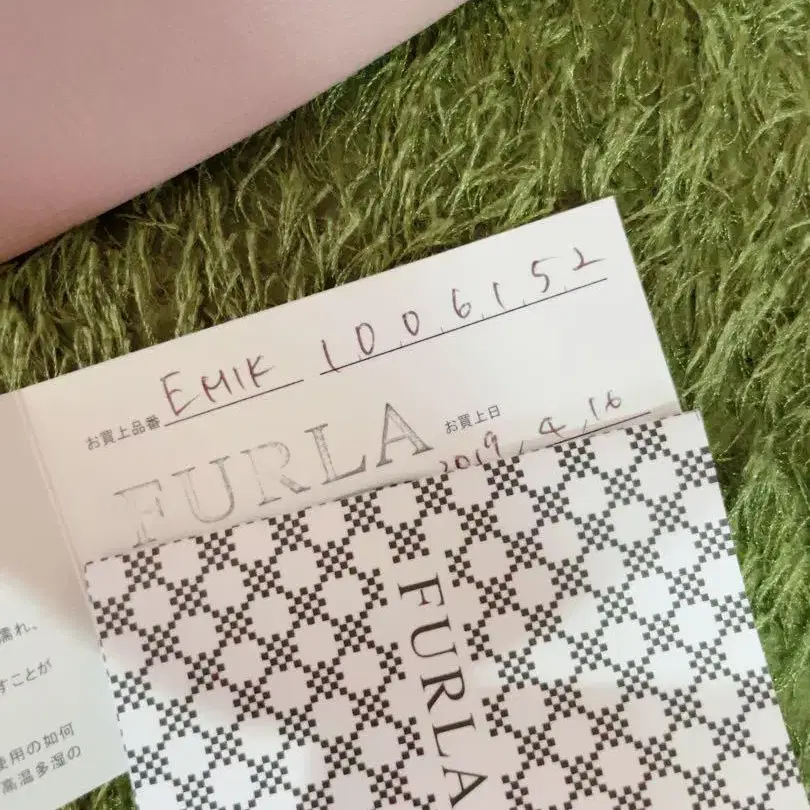 お買上品番 EMIK 1006152
お買上日 2019,4,16
FURLA
FURLA
濡れ、
すことが
使用の如何
高温多湿の